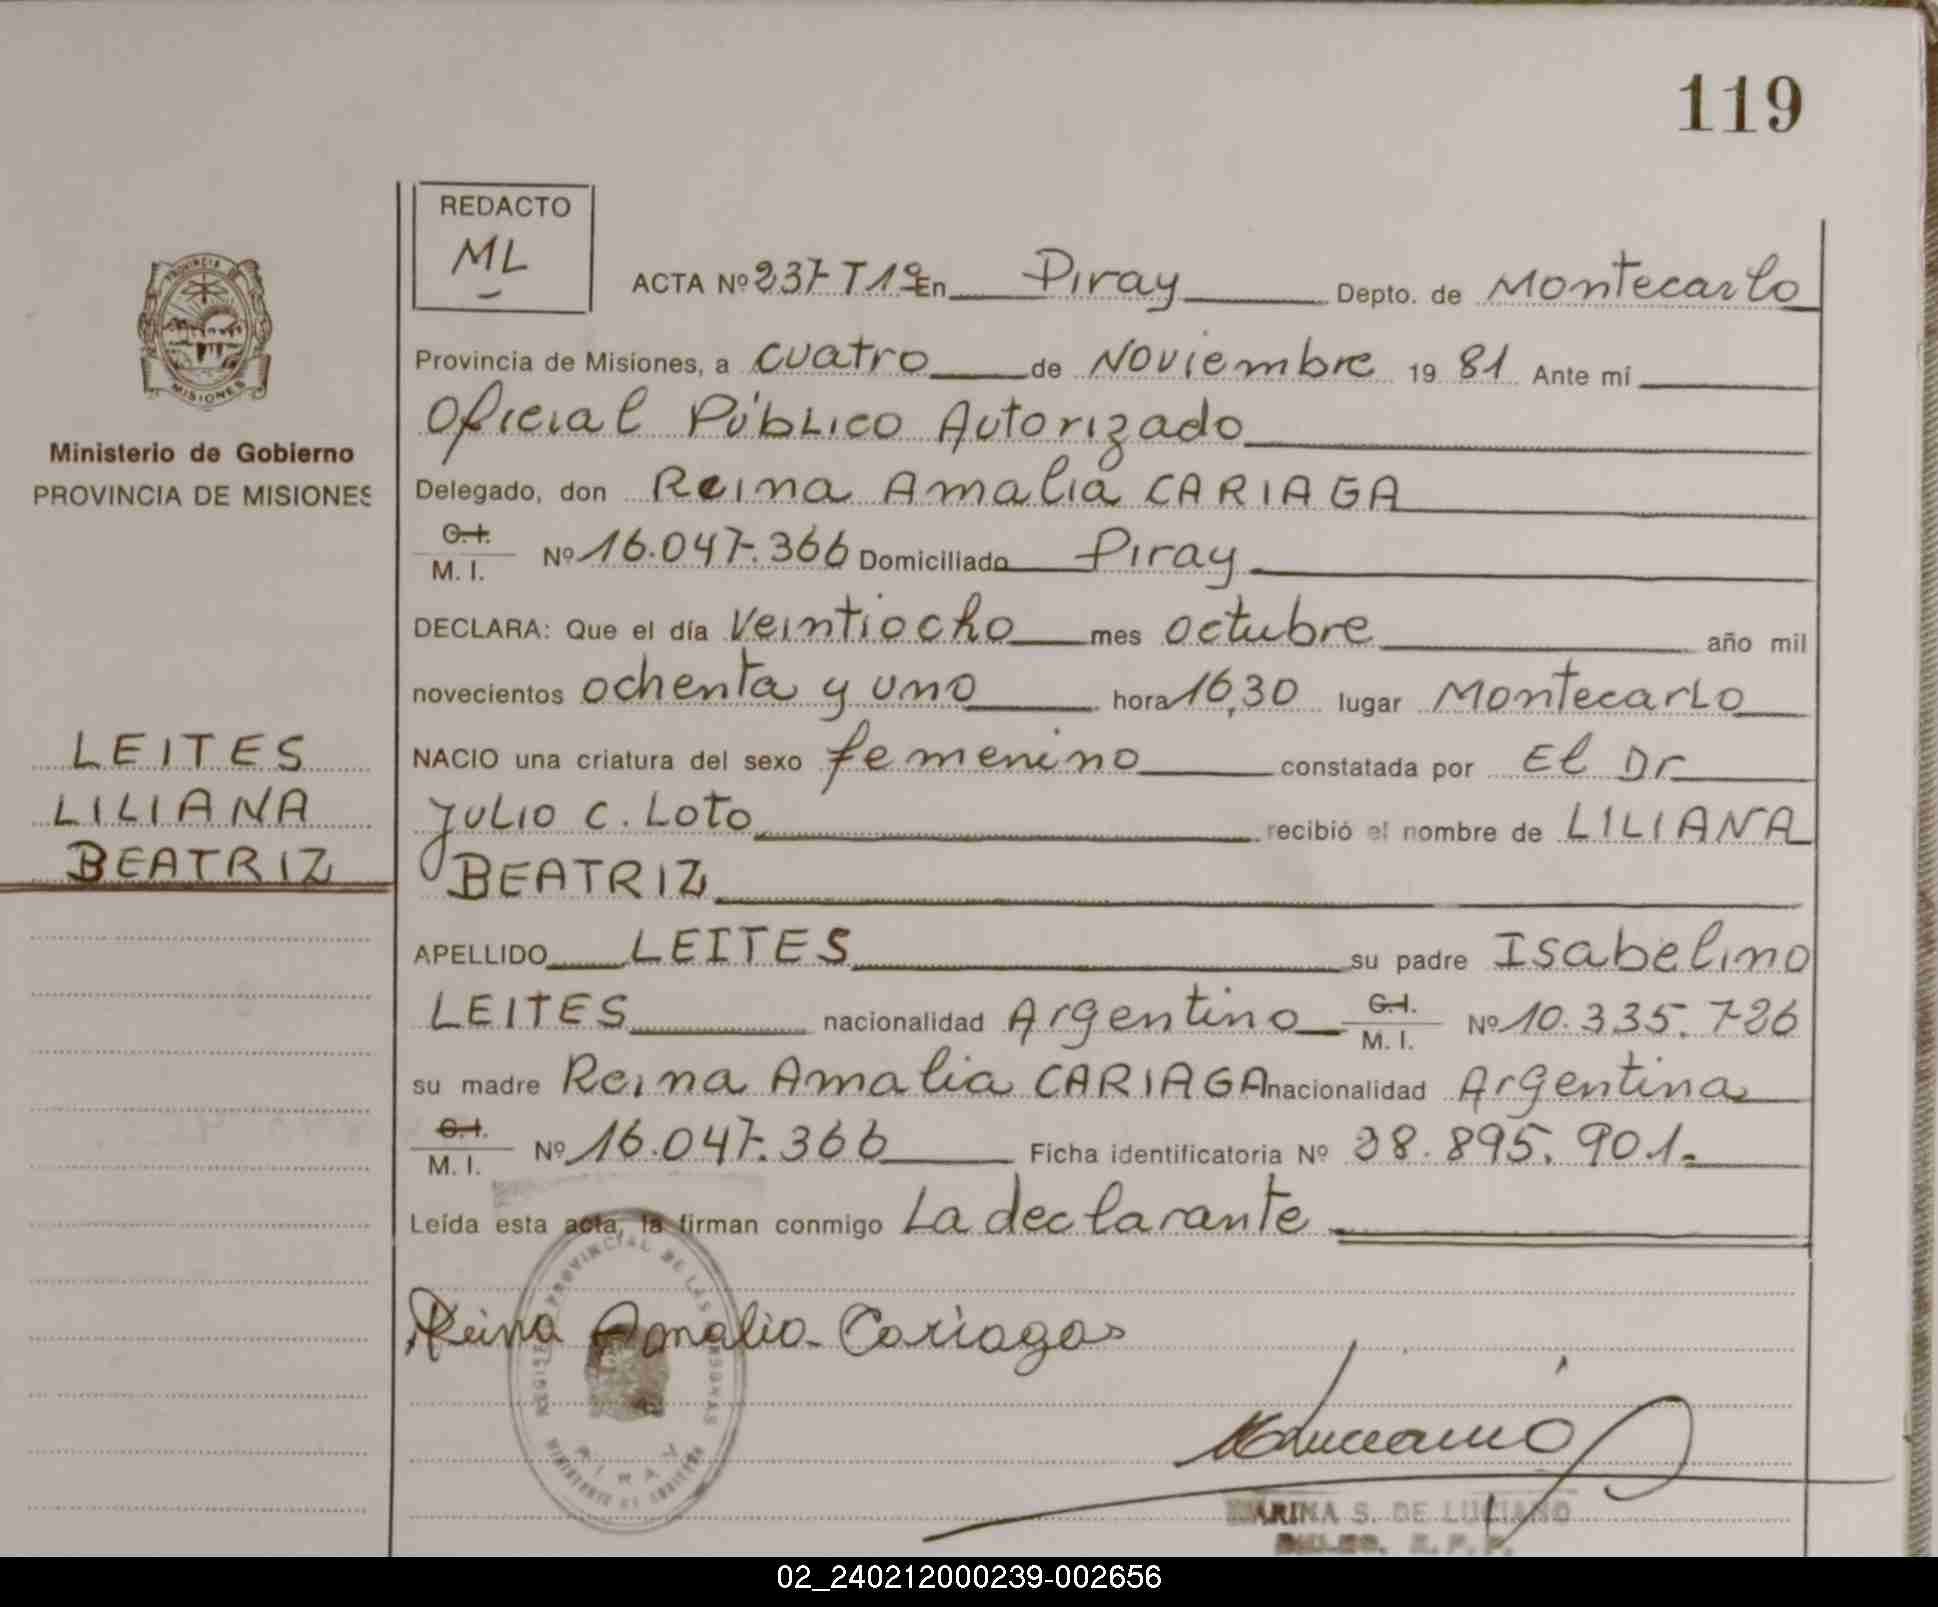 119
REDACTO
ML
ACTA Nº 237-T1º En Piray Depto. de Montecarlo
Provincia de Misiones, a cuatro de Noviembre 19 81 Ante mí
Oficial Público Autorizado
Delegado, don Reina Amalia CARIAGA
C.I. M.I. Nº 16.047.366 Domiciliado Piray
DECLARA: Que el día veintiocho mes octubre año mil
novecientos ochenta y uno hora 16,30 lugar Montecarlo
NACIO una criatura del sexo femenino constatada por El Dr
Julio C. Loto recibió el nombre de LILIANA
BEATRIZ
APELLIDO LEITES su padre Isabelino
LEITES nacionalidad Argentino C.I. M.I. Nº 10.335.726
su madre Reina Amalia CARIAGA nacionalidad Argentina
C.I. M.I. Nº 16.047.366 Ficha identificatoria Nº 28.895.901.-
Leída esta acta, la firman conmigo La declarante
Reina Amalia Cariaga
PROVINCIA
MISIONES
Ministerio de Gobierno
PROVINCIA DE MISIONES
LEITES
LILIANA
BEATRIZ
REGISTRO PROVINCIAL DE LAS PERSONAS
PIRAY
MINISTERIO DE GOBIERNO
MARINA S. DE LUCIANO
02_240212000239-002656